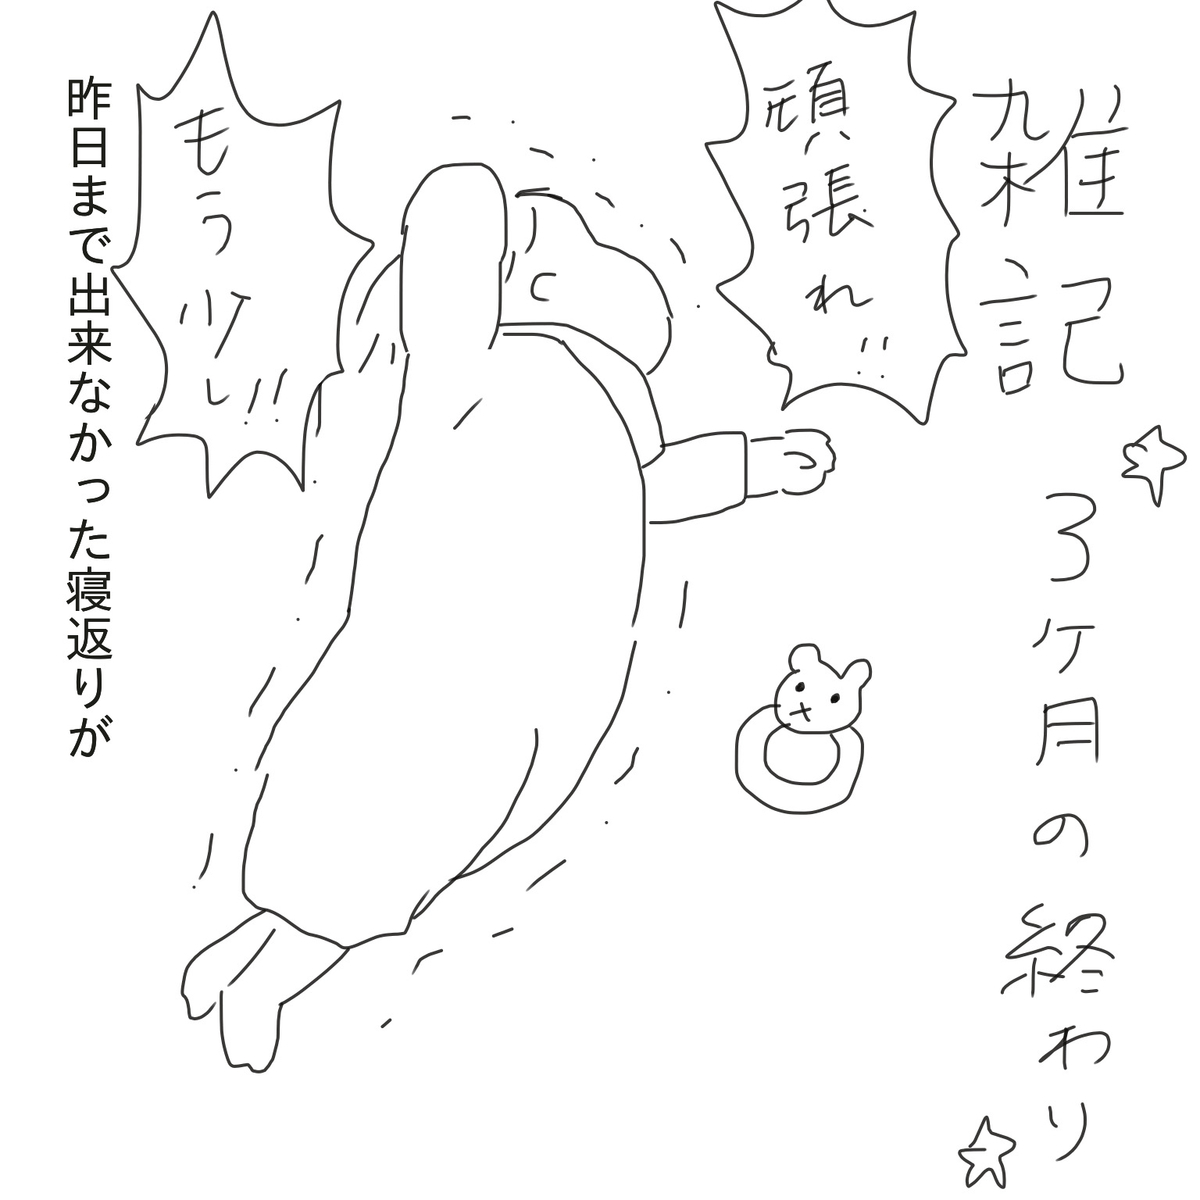 雑記
3ヶ月の終わり
頑張れ!!
もう少し!!
昨日まで出来なかった寝返りが